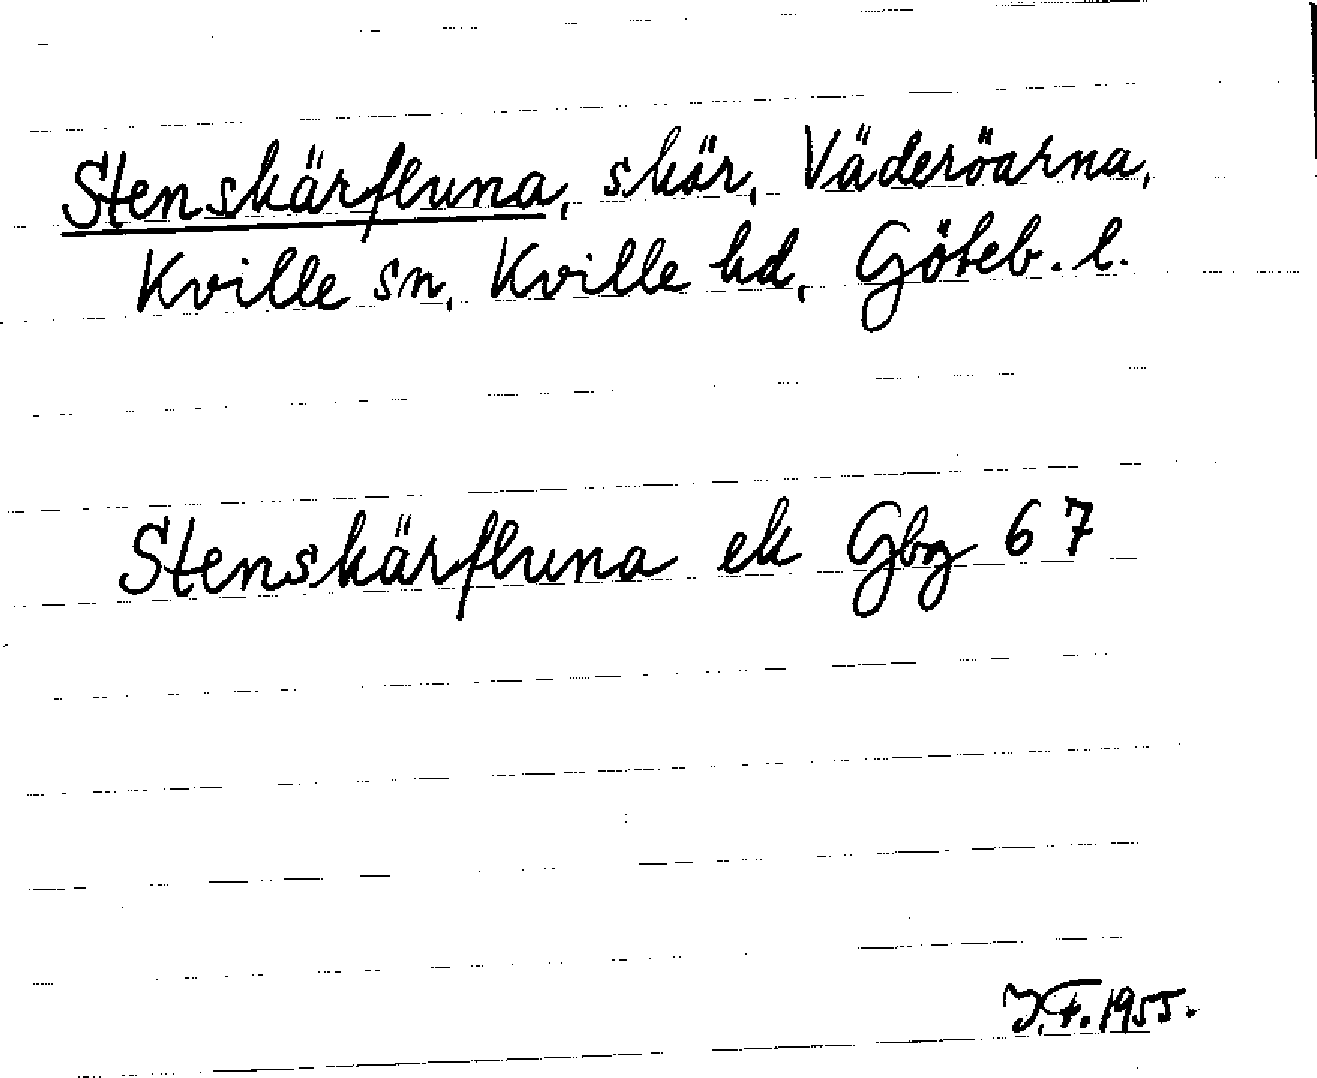 Stenskärfluna, skär, Väderöarna,
Kville sn, Kville hd, Göteb. l.
Stenskärfluna ek Gbg 67
J.F. 1955.